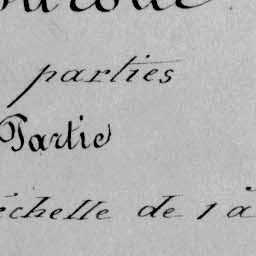 parties
Partie
échelle de 1 à